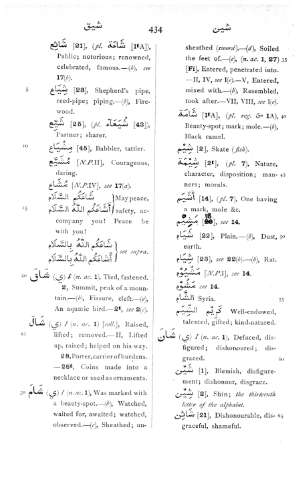 شيق
434
شين
شَائِع [21], (pl. شَاعَة [I⁴A]),
Public; notorious; renowned,
celebrated, famous.—(b), see
17(b).
شِيَاع [23], Shepherd's pipe,
reed-pipe; piping.—(b), Fire-
wood.
شَيِّع [25], (pl. [43]),
Partner; sharer.
[45], Babbler, tattler.
[N.P.II], Courageous,
daring.
[N.P.IV], see 17(a).
شَاعَكُم السَّلَام May peace,
أَشَاعَكُم اللّٰهُ السَّلَام safety, ac-
company you! Peace be
with you!
شَاعَكُم اللّٰهُ بِالسَّلَام
أَشَاعَكُم اللّٰهُ بِالسَّلَام see supra.
(ي) I (n. ac. 1), Tied, fastened.
2, Summit, peak of a moun-
tain—(b), Fissure, cleft.—(c),
An aquatic bird.—2⁴, see 2(c).
شَالَ (ي) I (n. ac. 1) [coll.], Raised,
lifted; removed.—II, Lifted
up, raised; helped on his way.
28, Porter, carrier of burdens.
—26⁴, Coins made into a
necklace or used as ornaments.
شَامَ (ي) I (n. ac. 1), Was marked with
a beauty-spot.—(b), Watched,
waited for, awaited; watched,
observed.—(c), Sheathed; un-
sheathed (sword).—(d), Soiled
the feet of.—(e), (n. ac. 1, 27)
[Fi], Entered, penetrated into.
—II, IV, see I(c).—V, Entered,
mixed with.—(b), Resembled,
took after.—VII, VIII, see I(e).
شَامَة [I⁴A], (pl. reg. & 1A),
Beauty-spot; mark; mole.—(b),
Black camel.
شِيم [2], Skate (fish).
شِيمَة [2t], (pl. 7), Nature,
character, disposition; man-
ners; morals.
أَشْيَم [14], (pl. 7), One having
a mark, mole &c.
[22], Plain.—(b), Dust,
earth.
شِيَام [23], see 22(b).—(b), Rat.
[N.P.I], see 14.
see 14.
الشَّام Syria.
كَرِيم الشِّيَم Well-endowed,
talented, gifted; kind-natured.
شَانَ (ي) I (n. ac. 1), Defaced, dis-
figured; dishonoured; dis-
graced.
شَيْن [1], Blemish, disfigure-
ment; dishonour, disgrace.
شِين [2], Shin; the thirteenth
letter of the alphabet.
شَائِن [21], Dishonourable, dis-
graceful, shameful.